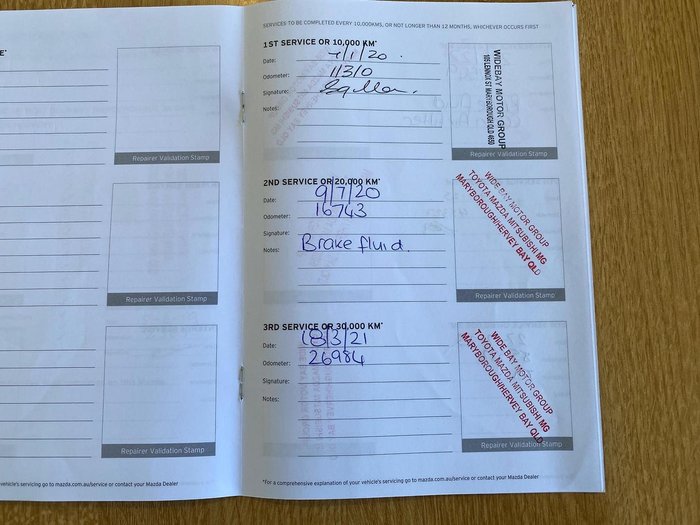 E*
Repairer Validation Stamp
Repairer Validation Stamp
Repairer Validation Stamp
's servicing go to mazda.com.au/service or contact your Mazda Dealer
SERVICES TO BE COMPLETED EVERY 10,000KMS, OR NOT LONGER THAN 12 MONTHS, WHICHEVER OCCURS FIRST
1ST SERVICE OR 10,000 KM*
Date: 7/1/20.
Odometer:
Signature:
Notes:
WIDEBAY MOTOR GROUP
MARYBOROUGH QLD 4650
Repairer Validation Stamp
2ND SERVICE OR 20,000 KM*
Date: 9/7/20
Odometer: 16743
Signature:
Notes: Brake fluid.
WIDE BAY MOTOR GROUP
TOYOTA MAZDA MITSUBISHI MG
MARYBOROUGH/HERVEY BAY QLD
Repairer Validation Stamp
3RD SERVICE OR 30,000 KM*
Date: 18/3/21
Odometer: 26984
Signature:
Notes:
WIDE BAY MOTOR GROUP
TOYOTA MAZDA MITSUBISHI MG
MARYBOROUGH/HERVEY BAY QLD
Repairer Validation Stamp
*For a comprehensive explanation of your vehicle's servicing go to mazda.com.au/service or contact your Mazda Dealer